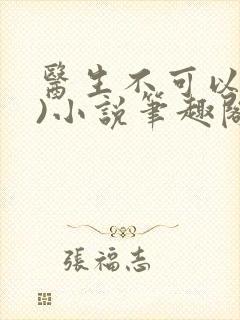 醫生不可以
)小說筆趣閣
張福志